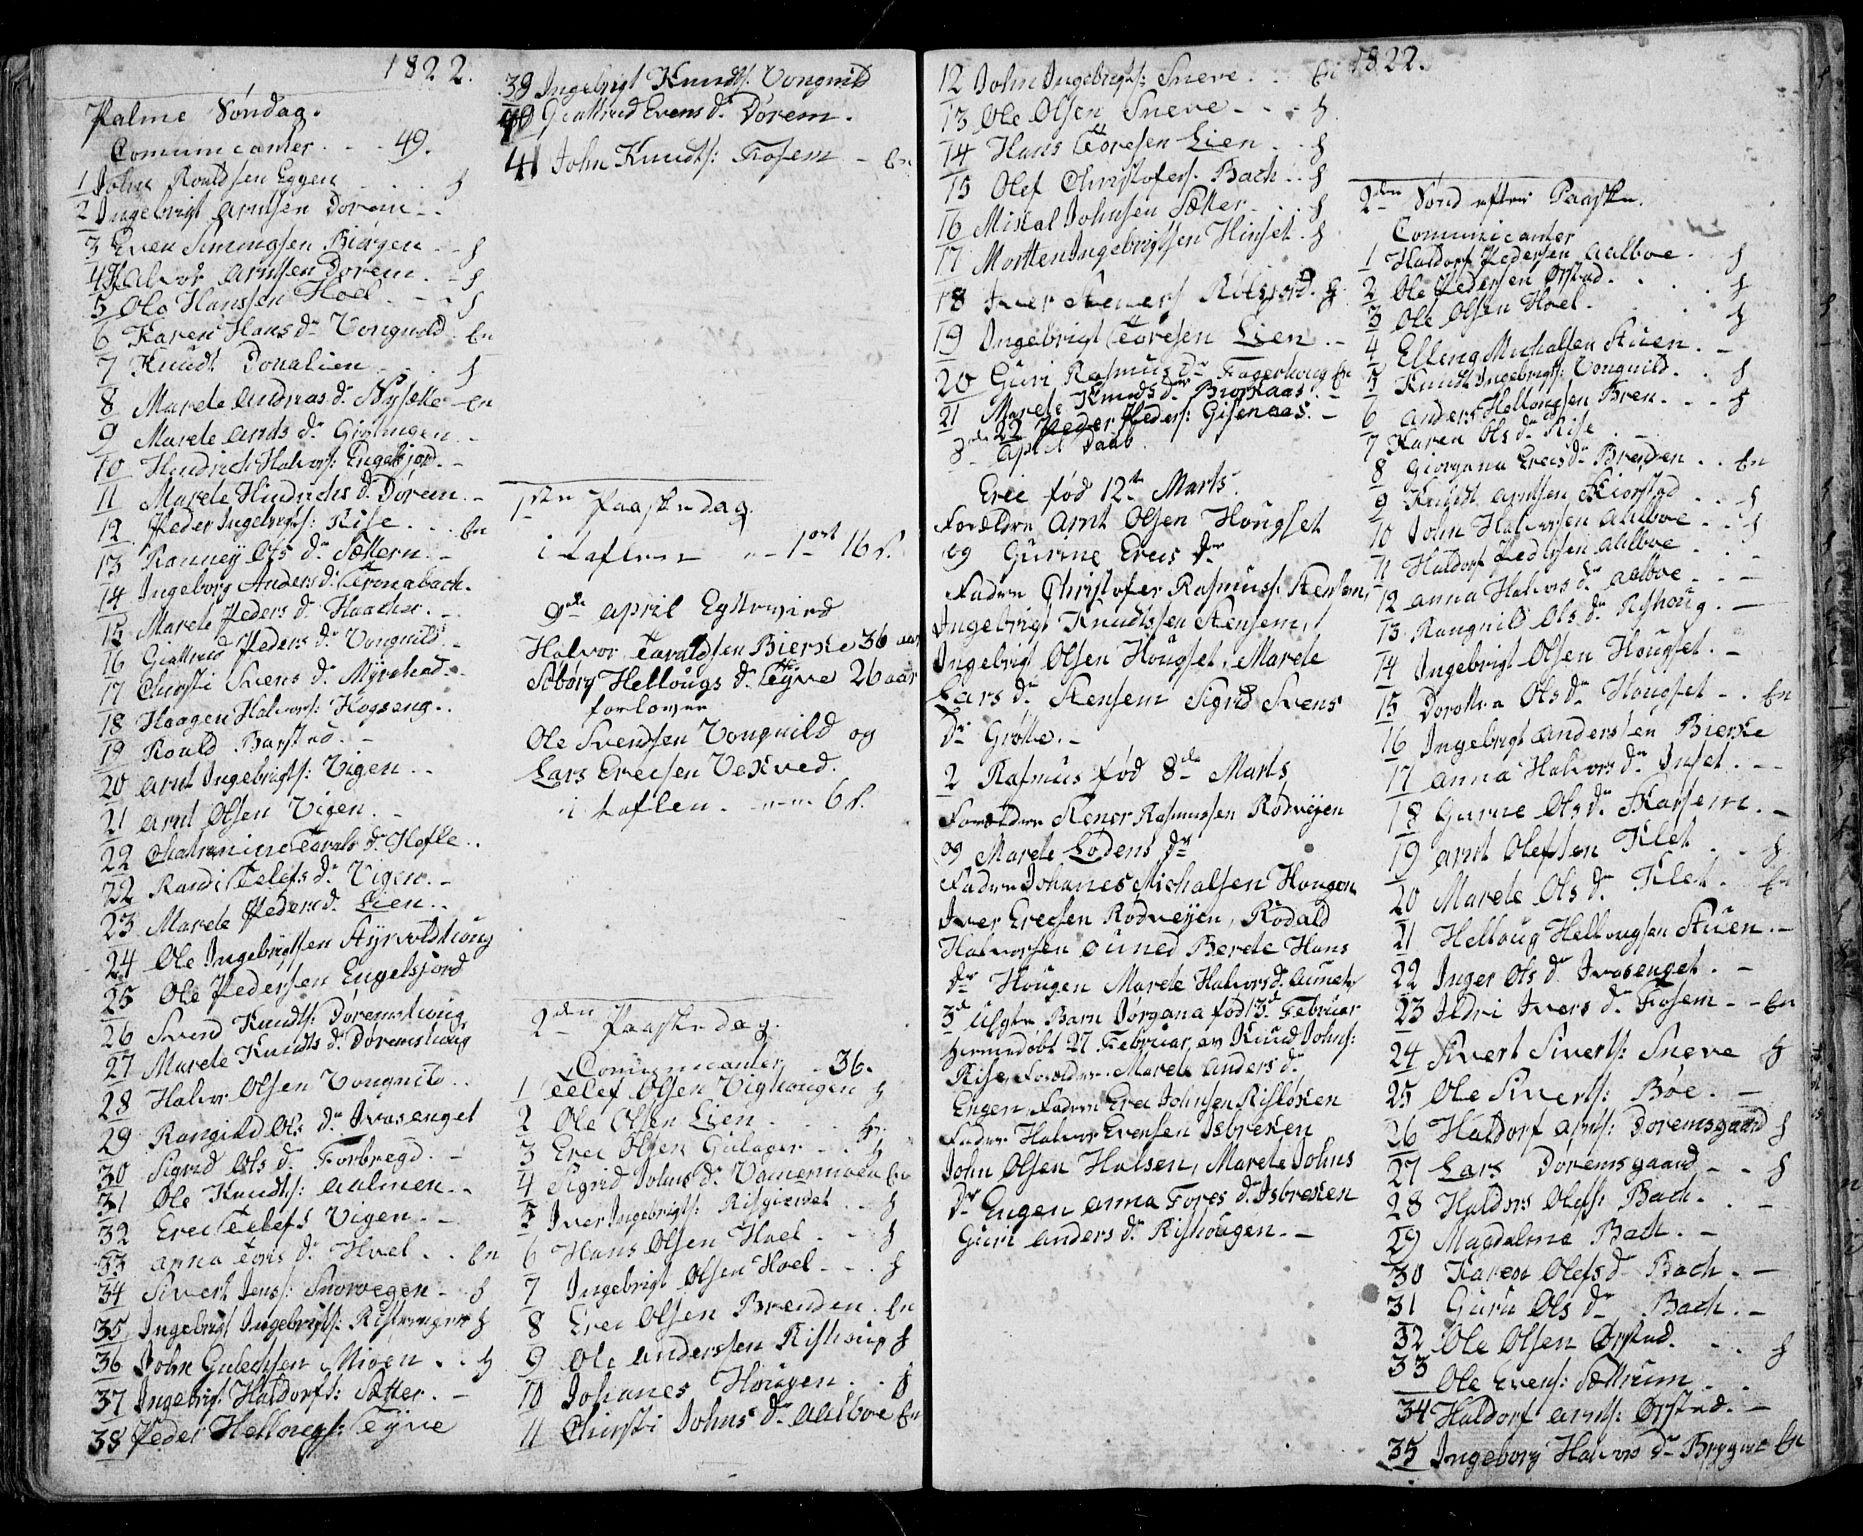 1822.
Palme Søndag.
Comunicanter - - 49.
1 John Roaldsen Eggen
2 Ingebrigt Arntsen Dorem
3 Even Simongsen Biørgen
4 Halvor Arntsen Dorem
5 Ole Hanssen Hoel
6 Karen Hans dr Vongnild En
7 Knudt Donalien
8 Marete Andreas dr Nysette En
9 Marete Arnds dr
10 Hendrich Halvors: Engelsjord
11 Marete Hendrichs dr Dørem
12 Peder Ingebrigts: Rise En
13 Ranney Ols dr Sættern
14 Ingeborg Anders dr
15 Marete Peders dr Haacker
16 Giattrud Peders dr Vongnild
17 Christi Svens dr
18 Haagen Halvors:
19 Roald Barstad
20 Arnt Ingebrigts: Vigen
21 Arnt Olsen Vigen
22 Tarals dr Hofle
22 Randi Eelefs dr Vigen
23 Marete Peders dr Lien
24 Ole Ingebrigtssen Styrvoldhoug
25 Ole Pedersen Engelsjord
26 Svend Knudts: Døremshoug
27 Marete Knudts dr Døremshoug
28 Halvor Olsen Vongnild
29 Rangnild Ols dr Ivasenget
30 Sigrid Ols dr Forbregd
31 Ole Knudts: Aalmen
32 Erec Eelefs Vigen
33 Anna Tores dr Hoel En
34 Sivert Jens: Snovegen
35 Ingebrigt Ingebrigts:
36 John Gulechsen Mioen
37 Ingebrigt Haldorfs: Sætter
38 Peder Hellougs: Tyve
39 Ingebrigt Knudts: Vongnild
40 Giattrud Evens dr Dorem
41 John Knudts: Fosem En
1sten Paaskedag.
i taflene - - 1 ort 16 s.
9de April Egtevied
Halvor Taraldsen Bierke 36 aar
Sibørg Hellougs dr Tyve 26 aar
forlover
Ole Svendsen Vongnild og
Lars Erecsen Vekved.
i taflen. 6 s.
2den Paaskedag.
Comunicanter 36.
1 Eelef Olsen Vighougen
2 Ole Olsen Lien
3 Erec Olsen Gulager
4 Sigrid Johns dr En
5 Iver Ingebrigts: Risgierdet
6 Hans Olsen Hoel
7 Ingebrigt Olsen Hoel
8 Erec Olsen Brenden En
9 Ole Anderssen Rishoug
10 Johanes Hougen
11 Christi Johns dr Aalboe En
1822.
12 John Ingebrigts: Sneve En
13 Ole Olsen Sneve
14 Hans Toresen Lien
15 Olef Christofers: Bach
16 Mikal Johnsen Sætter
17 Morten Ingebrigtsen Hinset
18 Iver
19 Ingebrigt Toresen Lien
20 Guri Rasmus dr Fagerhoug En
21 Marete Knuds dr Biørkaas
22 Peder Peders: Gisenaas
8de April Daab
Erec fød 12te Marts
Forældre Arnt Olsen Hougset
og Gurine Erecs dr
Faddere Christofer Rasmuss: Stensem,
Ingebrigt Knudtssen Stensem,
Ingebrigt Olsen Hougset, Marete
Lars dr Stensem Sigrid Svens
dr Grøtte.
2 Rasmus fød 8de Marts
Forældre Stener Rasmussen Rødveyen
og Marete Lodens dr
Faddere Johanes Michalsen Hougen
Iver Erecsen Rødveyen, Rodald
Halvorsen Auned Berete Hans
dr Hougen Marete Halvors dr Aunet,
3d Uægte Barn Jørgana fød 13d Februar
hiemmedøbt 27 Februar, av Knud Johns:
Rise Forældre Marete Anders dr
Engen Fadern Erec Johnsen Risløken
Faddere Halvor Evensen Isbreken
John Olsen Halsen, Marete Johns
dr Engen Anna Tores dr Isbreken
Guri Anders dr Rishougen.
2den Sønd efter Paaske.
Comunicanter
1 Haldorf Pedersen Aalboe
2 Ole Pedersen Ørstad
3 Ole Olsen Hoel
4 Elling Michalsen Stuen
5 Knudt Ingebrigts: Vongnild
6 Anders Hellougsen Bren
7 Karen Ols dr Rise
8 Giørgana Erecs dr Brenden En
9 Knudt Arntsen Kiorstad
10 John Halvorsen Aalboe
11 Haldorf Pedersen Aalboe
12 Anna Halvors dr Aalboe
13 Rangnild Ols dr Rishoug
14 Ingebrigt Olsen Hougset
15 Dorothea Ols dr Hougset En
16 Ingebrigt Anderssen Bierke
17 Anna Halvors dr Inset
18 Gurine Ols dr
19 Arnt Olefsen Klet
20 Marete Ols dr Klet En
21 Helloug Hellougsen Stuen
22 Inger Ols dr Ivasenget
23 Ildri Ivers dr Fosem En
24 Sivert Siverts: Sneve
25 Ole Siverts: Bøe
26 Haldorf Arnts: Doremsgaard
27 Lars Doremsgaard
28 Haldors Olefs: Bach
29 Magdalena Bach
30 Karen Olefs d Bach
31 Guru Ols dr Bach
32 Ole Olsen Ørstad
33 Ole Evens: Sættrum
34 Haldorf Arnts: Ørstad
35 Ingeborg Halvors dr En